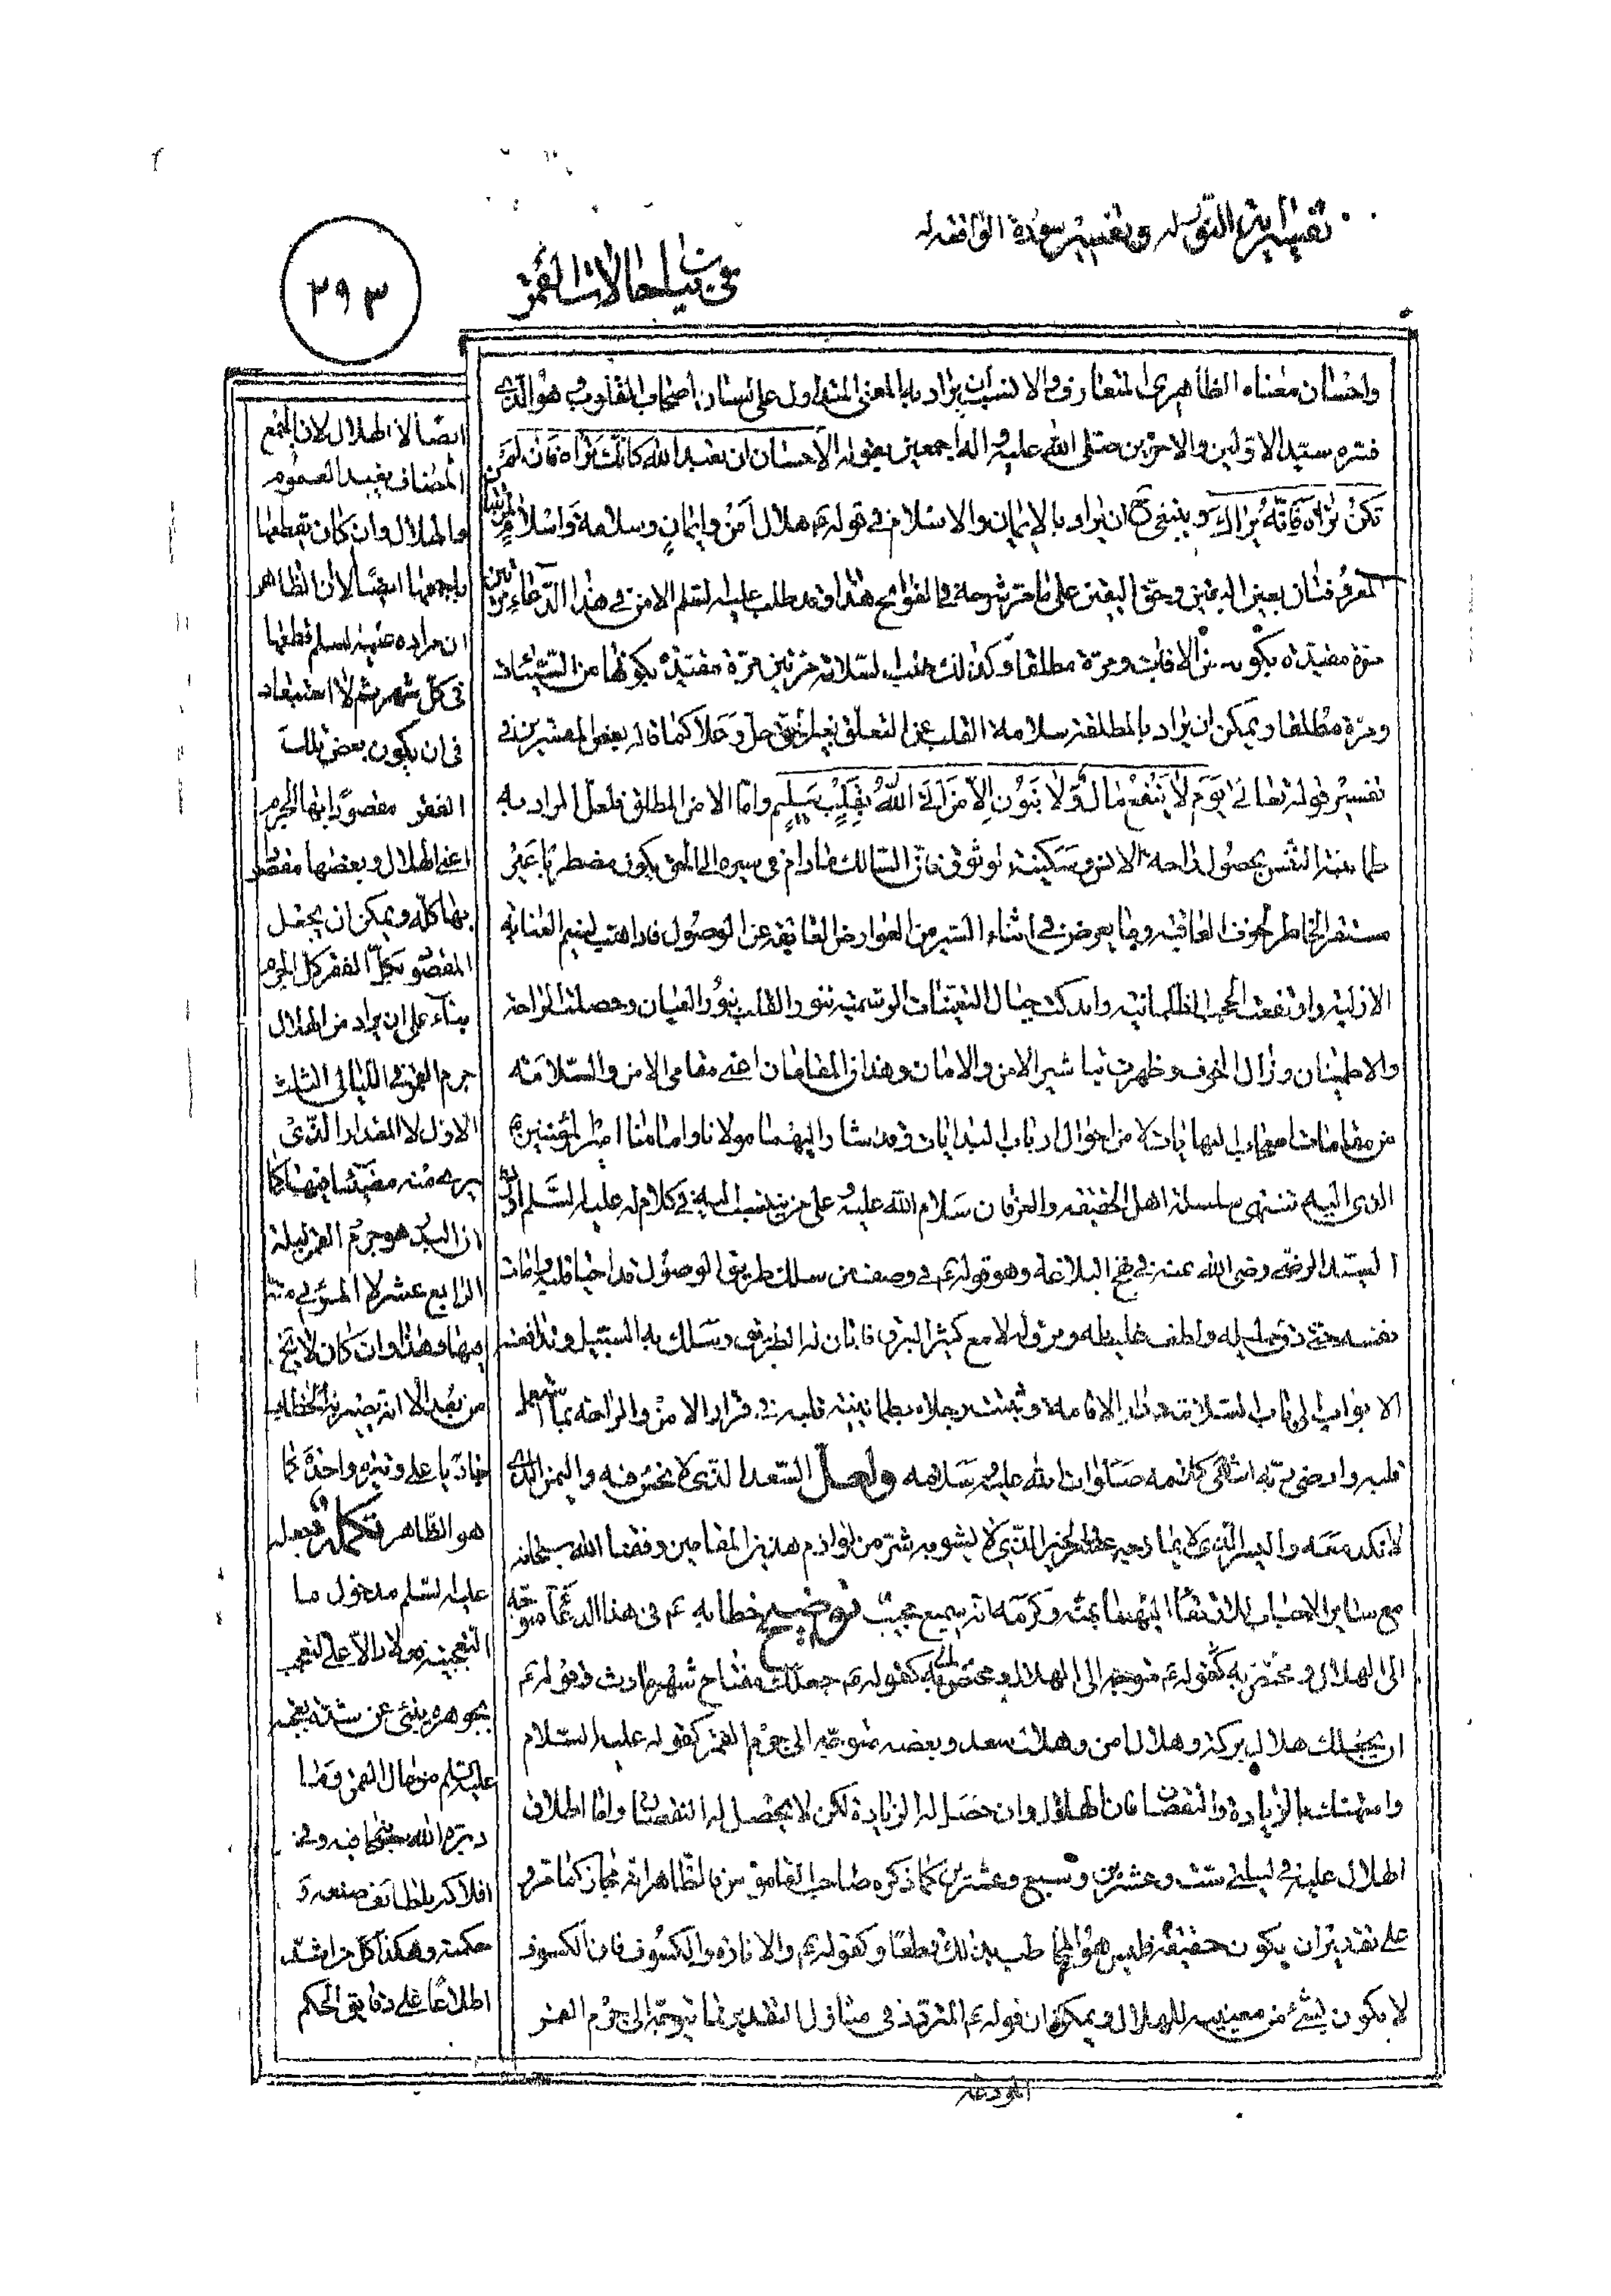 تفسير آية النور وتفسير سورة الواقعة له
في بيان حالات القمر
٢٩٣
واحسان معناه الظاهري المتعارف والانسب ان يراد به المعنى المتداول على لسان اصحاب القلوب وهو الذي
فسره سيد الاولين والاخرين صلى الله عليه واله اجمعين بقوله الاحسان ان تعبد الله كانك تراه فان لم
تكن تراه فانه يراك وينبغي ان يراد بالايمان والاسلام في قوله ع هلال امن وايمان وسلامة واسلام المرتبتان
المعروفتان بعين اليقين وحق اليقين على ما مر شرحه في الفواتح هذا وقد طلب عليه السلم الامن في هذا الدعاء مرتين
مرة مقيدة بكونه من الافات ومرة مطلقا وكذلك طلب السلامة مرتين مرة مقيدة بكونها من السيئات
ومرة مطلقا ويمكن ان يراد بالمطلقة سلامة القلب عن التعلق بغير الحق جل وعلا كما قاله بعض المفسرين في
تفسير قوله تعالى يوم لا ينفع مال ولا بنون الا من اتى الله بقلب سليم واما الامن المطلق فلعل المراد به
طمانينة النفس بحصول راحة الانس وسكينة الوثوق فان السالك ما دام في سيره الى الحق يكون مضطربا غير
مستقر الخاطر لخوف العاقبة وما يعرض في اثناء السير من العوارض العايقة عن الوصول فاذا هب نسيم العناية
الازلية وارتفعت الحجب الظلمانية واندكت جبال التعينات الرسمية تنور القلب بنور العيان وحصلت الراحة
والاطمينان وزال الخوف وظهرت تباشير الامن والامان وهذان المقامان اعني مقامي الامن والسلامة
من مقامات اصحاب النهايات لا من احوال ارباب البدايات وقد اشار اليهما مولانا وامامنا امير المؤمنين ع
الذي اليه تنتهي سلسلة اهل الحقيقة والعرفان سلام الله عليه وعلى من ينتسب اليه في كلام له عليه السلم اورده
السيد الرضي رضي الله عنه في نهج البلاغة وهو قوله ع في وصف من سلك طريق الوصول قد احيا قلبه وامات
نفسه حتى دق جليله ولطف غليظه وبرق له لامع كثير البرق فابان له الطريق وسلك به السبيل وتدافعته
الابواب الى باب السلامة ودار الاقامة وثبتت رجلاه بطمانينة قلبه في قرار الامن والراحة بما استعمل
قلبه وارضى ربه انتهى كلامه صلوات الله عليه وسلامه ولعل السعد الذي لا نحس فيه واليمن الذي
لا نكد معه واليسر الذي لا يمازجه عسر والخير الذي لا يشوبه شر من لوازم هذين المقامين وفقنا الله سبحانه
مع ساير الاحباب للارتقاء اليهما بمنه وكرمه انه سميع مجيب توضيح خطابه ع في هذا الدعاء متوجه
الى الهلال ومختص به كقوله ع جعلك مفتاح شهر حادث وقوله ع
ان يجعلك هلال بركة وهلال امن وهلال سعد وبعضه متوجه الى جرم القمر كقوله عليه السلام
وامتهنك بالزيادة والنقصان فان الهلال وان حصل له الزيادة لكن لا يحصل له النقصان واما اطلاق
الهلال عليه في ليلتي ست وعشرين وسبع وعشرين كما ذكره صاحب القاموس فالظاهر انه مجاز كما مر و
على تقدير ان يكون حقيقة فليس هو المخاطب بذلك قطعا وكقوله ع والانارة والكسوف فان الكسوف
لا يكون لشئ من معنييه للهلال ويمكن ان قوله ع المتردد في منازل التقدير مما يتوجه الى جرم القمر
ايضا لا الهلال لان الجمع
المضاف يفيد العموم
والهلال وان كان يقطعها
باجمعها ايضا الا ان الظاهر
ان مراده عليه السلم قطعها
في كل شهر ثم لا استبعاد
في ان يكون بعض تلك
الفقر مقصودا بها الجرم
اعني الهلال وبعضها مقصود
بها كله ويمكن ان يجعل
المقصود بكل الفقر كل الجرم
بناء على ان يراد من الهلال
جرم القمر في الليالي الثلث
الاول لا المقدار الذي
يرى منه مضيئا فيها كما
ان البدر هو جرم القمر ليلة
الرابع عشر لا المرئي منه
فيها وهذا وان كان لا يخ
من بعد الا انه يصير به الخطاب
جاريا على وتيرة واحدة كما
هو الظاهر تكملة جعله
عليه السلم مدخول ما
التعجبية فعلا دالا على التعجب
بجوهره ينبئ عن شدة تعجبه
عليه السلم من حال القمر وما
دبره الله سبحانه فيه وفي
افلاكه بلطائف صنعه و
حكمته وهكذا كل من اشد
اطلاعا على دقايق الحكم
المودعة